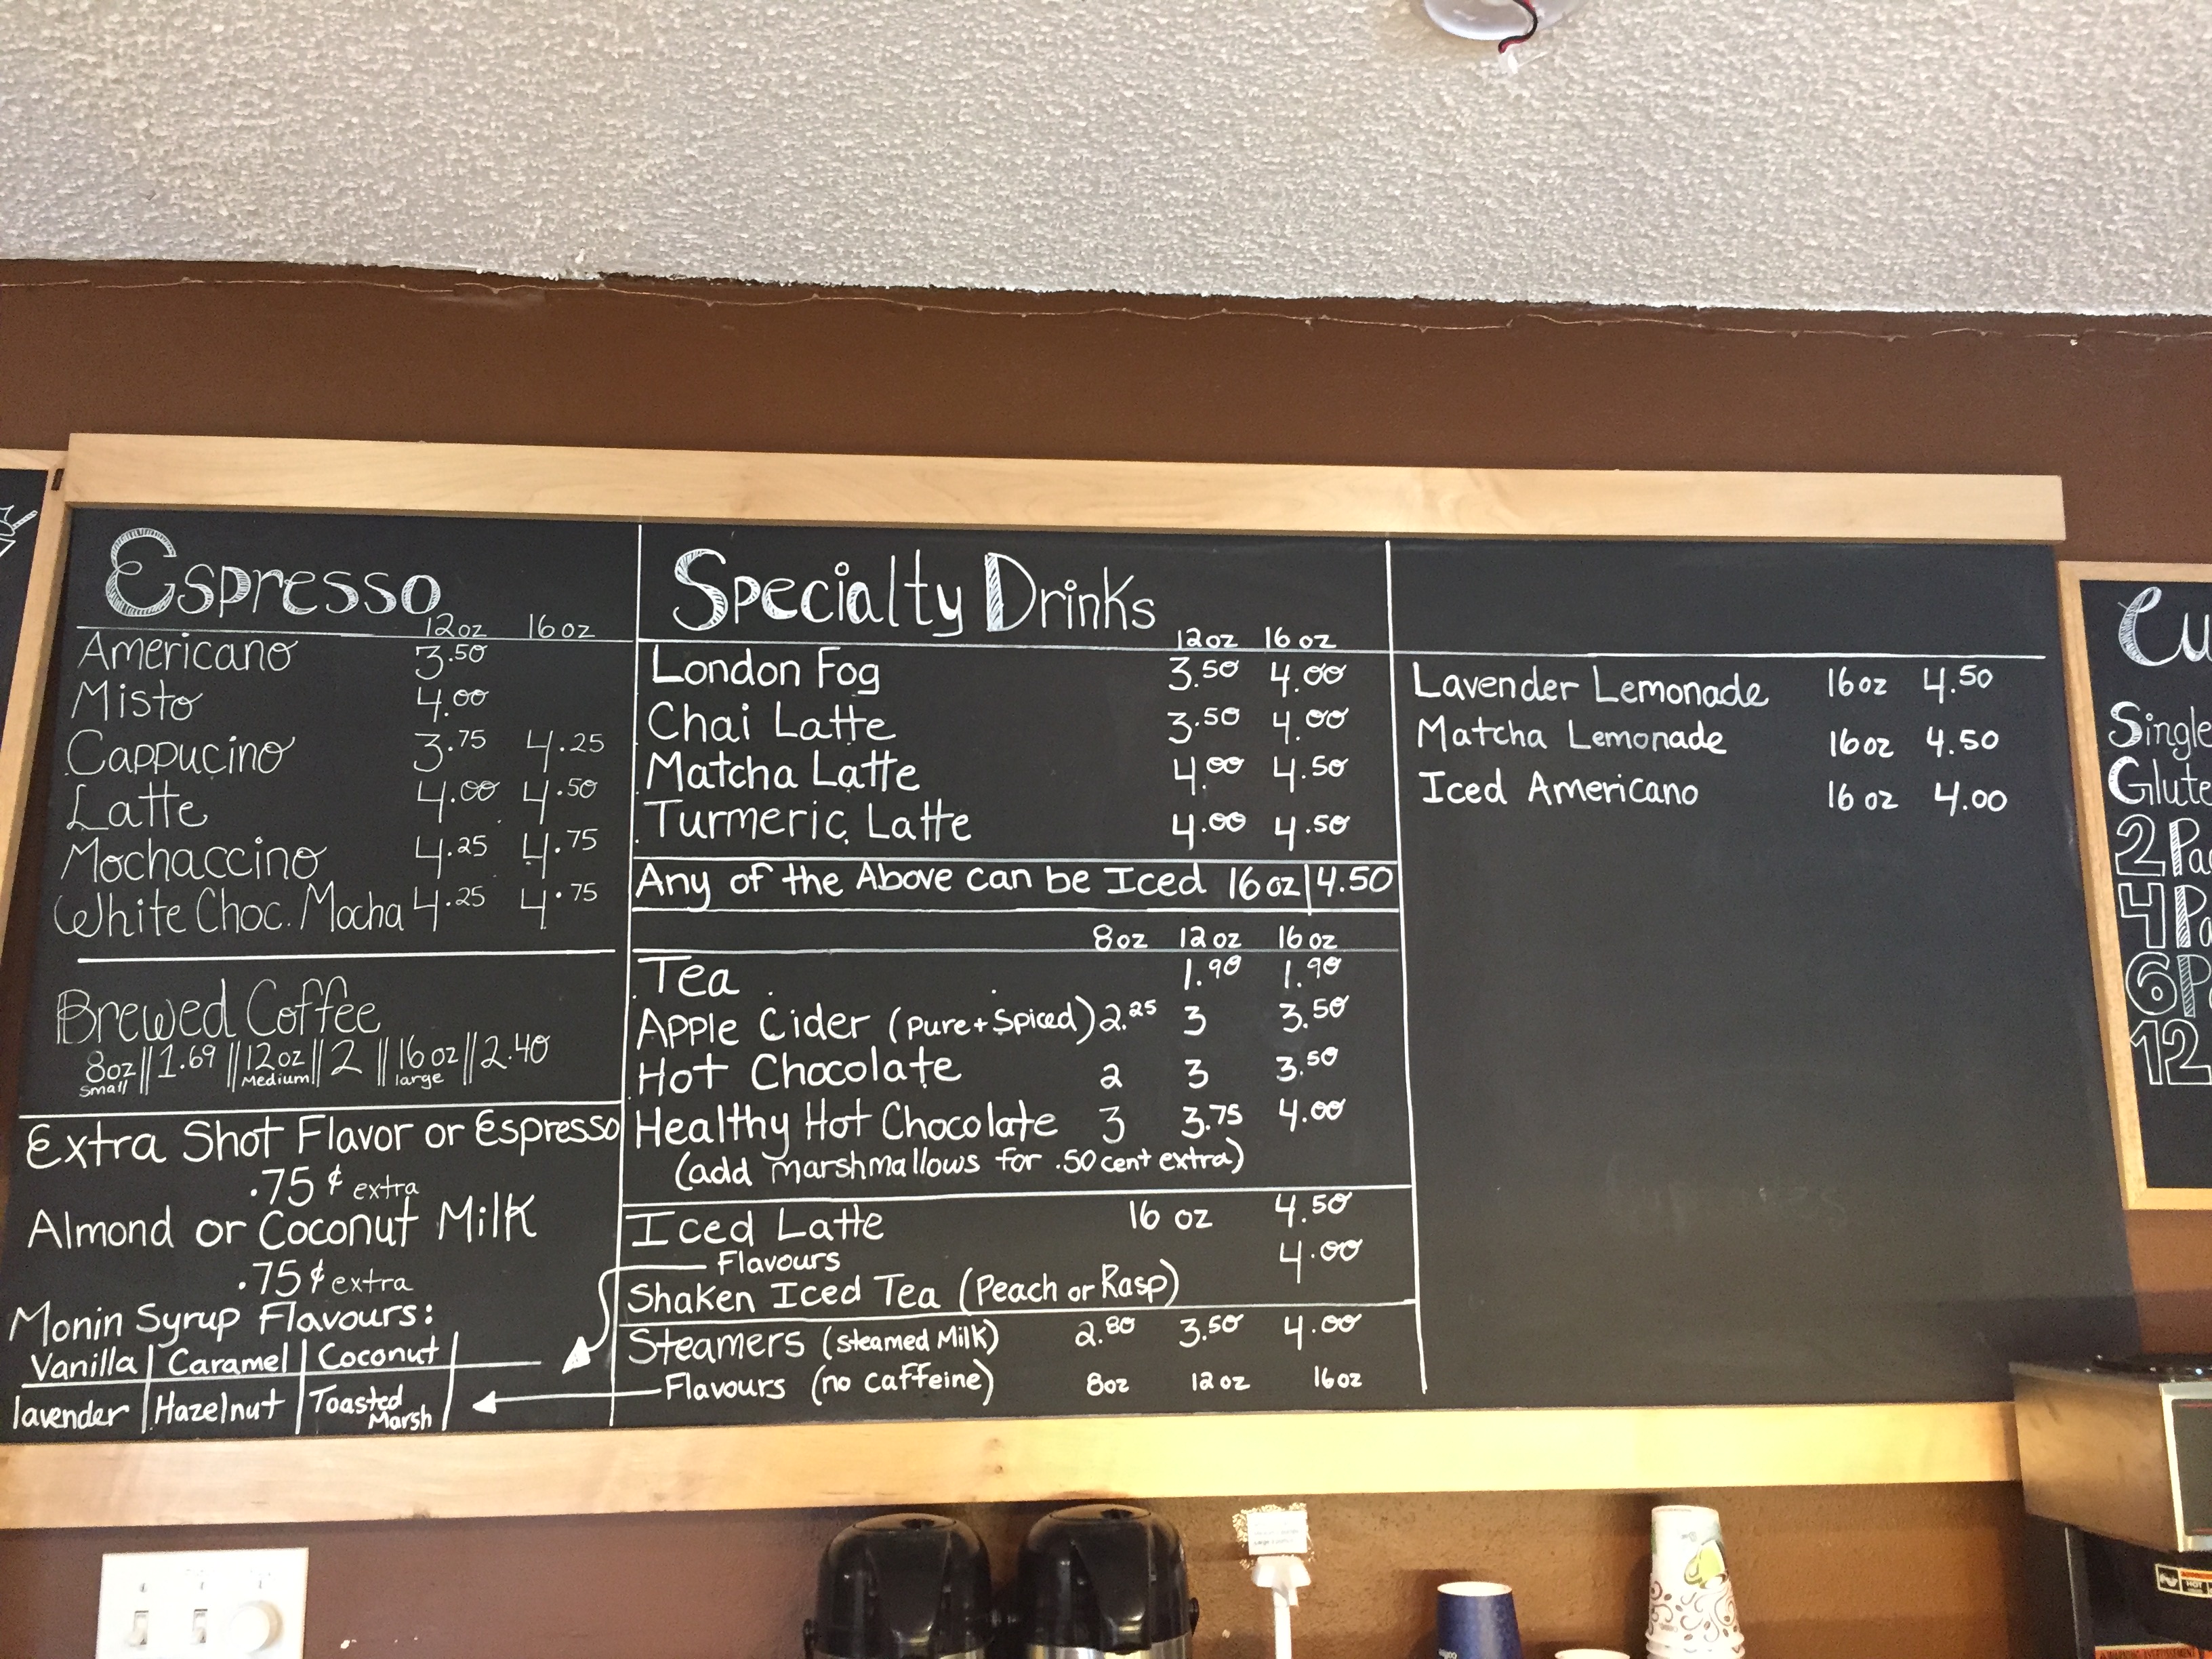 Espresso
12oz 16oz
Americano 3.50
Misto 4.00
Cappucino 3.75 4.25
Latte 4.00 4.50
Mochaccino 4.25 4.75
White Choc. Mocha 4.25 4.75
Brewed Coffee
8oz || 1.69 || 12oz || 2 || 16oz || 2.40
small Medium large
Extra Shot Flavor or Espresso
.75¢ extra
Almond or Coconut Milk
.75¢ extra
Monin Syrup Flavours:
Vanilla | Caramel | Coconut
lavender | Hazelnut | Toasted
Marsh
Specialty Drinks
12oz 16oz
London Fog 3.50 4.00
Chai Latte 3.50 4.00
Matcha Latte 4.00 4.50
Turmeric Latte 4.00 4.50
Any of the Above can be Iced 16oz | 4.50
8oz 12oz 16oz
Tea 1.90 1.90
Apple Cider (pure + Spiced) 2.25 3 3.50
Hot Chocolate 2 3 3.50
Healthy Hot Chocolate 3 3.75 4.00
(add marshmallows for .50 cent extra)
Iced Latte 16 oz 4.50
Flavours 4.00
Shaken Iced Tea (Peach or Rasp)
Steamers (steamed Milk) 2.80 3.50 4.00
Flavours (no caffeine) 8oz 12oz 16oz
Lavender Lemonade 16oz 4.50
Matcha Lemonade 16oz 4.50
Iced Americano 16oz 4.00
Cu
Single
Glute
2 Pa
4 Pa
6 P
12
HOT